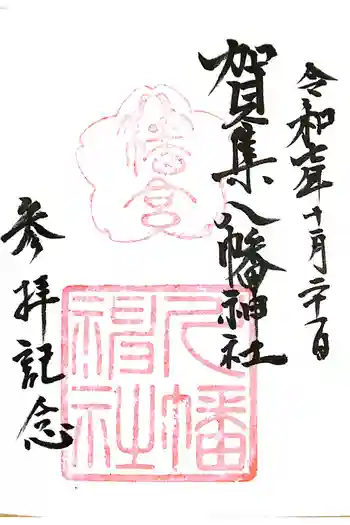 令和七年十月二十一日
賀集八幡神社
参拝記念
八幡宮
八幡
神社